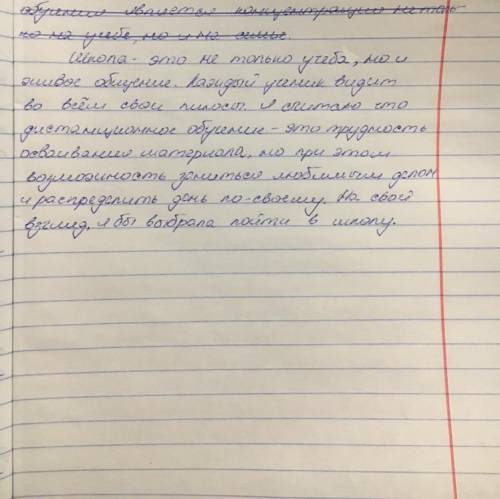 обучения является концентрация не толь
ко на учебе, но и на семье.
Школа - это не только учеба, но и
живое общение. Каждый ученик видит
во всём свои плюсы. Я считаю что
дистанционное обучение - это трудность
осваивания материала, но при этом
возможность заняться любимым делом
и распределить день по-своему. На свой
взгляд, я бы выбрала пойти в школу.